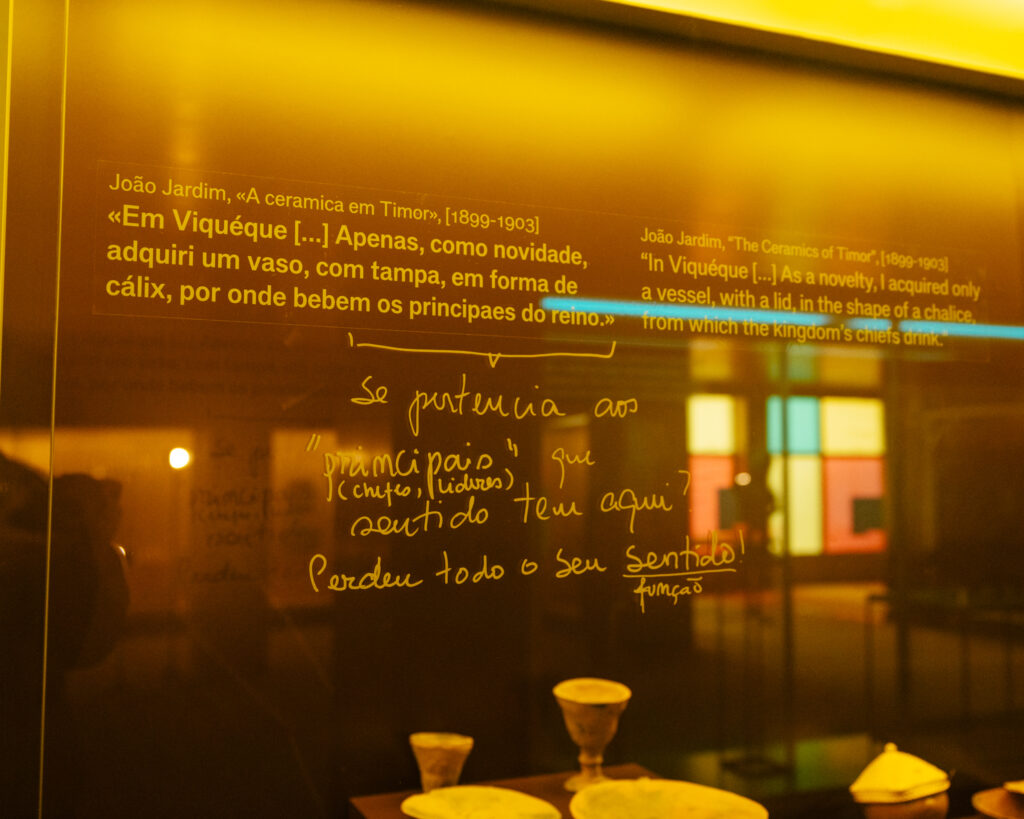 João Jardim, «A ceramica em Timor», [1899-1903]
«Em Viquéque [...] Apenas, como novidade,
adquiri um vaso, com tampa, em forma de
cálix, por onde bebem os principaes do reino.»
João Jardim, "The Ceramics of Timor", [1899-1903]
“In Viquéque [...] As a novelty, I acquired only
a vessel, with a lid, in the shape of a chalice,
from which the kingdom's chiefs drink.”
Se pertencia aos
"principais" que
(chefes, líderes)
sentido tem aqui?
Perdeu todo o seu sentido!
função